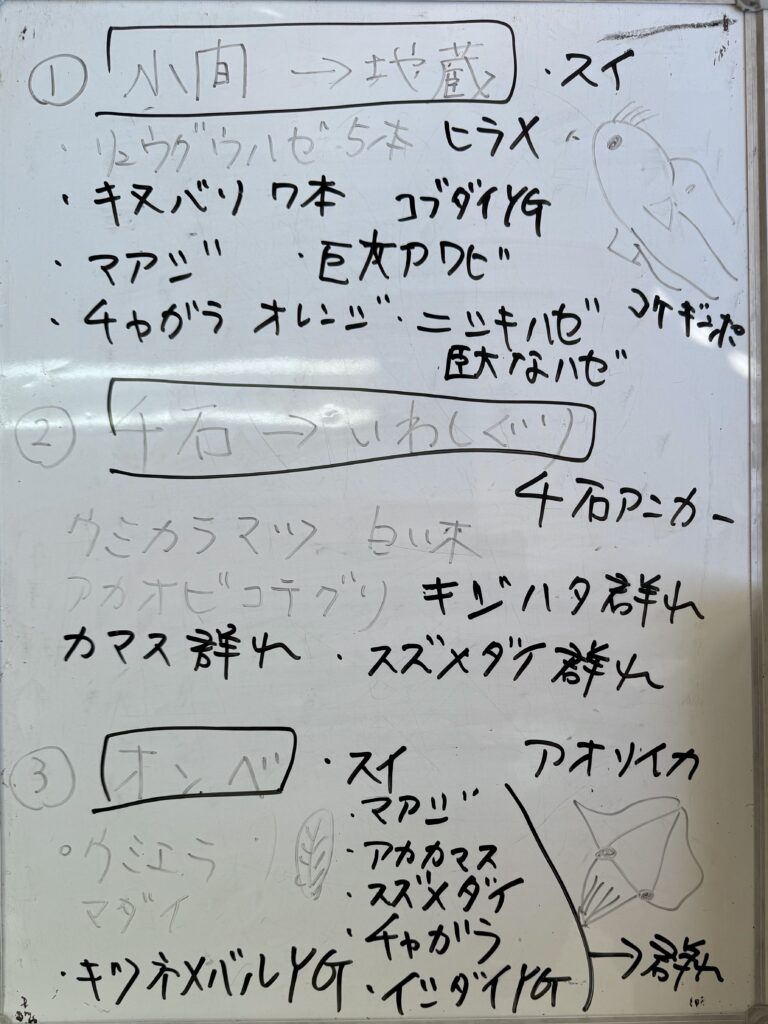 ① 小間 →地蔵 ・スイ
・リュウグウハゼ 5本 ヒラメ
・キヌバリ 7本 コブダイYG
・マアジ ・巨大アワビ
・チャガラ オレンジ・ニシキハゼ コケギンポ
巨大なハゼ
② 千石 → いわしぐり
千石アンカー
ウミカラマツ 白い木
アカオビコテグリ キジハタ群れ
カマス群れ ・スズメダイ群れ
③ オンベ ・スイ アオリイカ
・マアジ
ウミエラ ・アカカマス
マダイ ・スズメダイ
・チャガラ
・キツネメバルYG ・イシダイYG →群れ